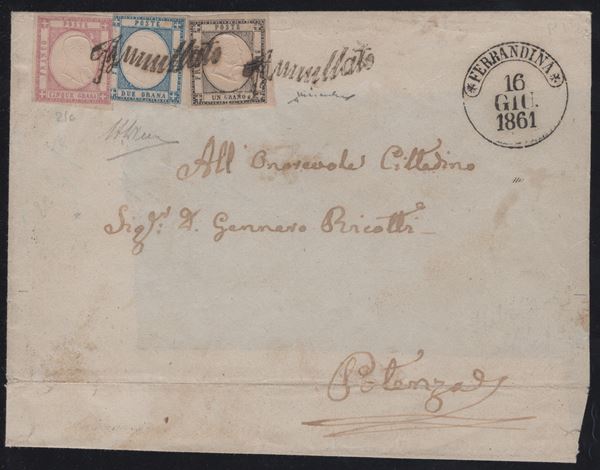 POSTE
FRANCO
CINQUE GRANA
POSTE
DUE GRANA
POSTE
UN GRANO
Annullato
Annullato
FERRANDINA
16
GIU.
1861
All' Onorevole Cittadino
Sig.r D. Gennaro Ricotti
Potenza